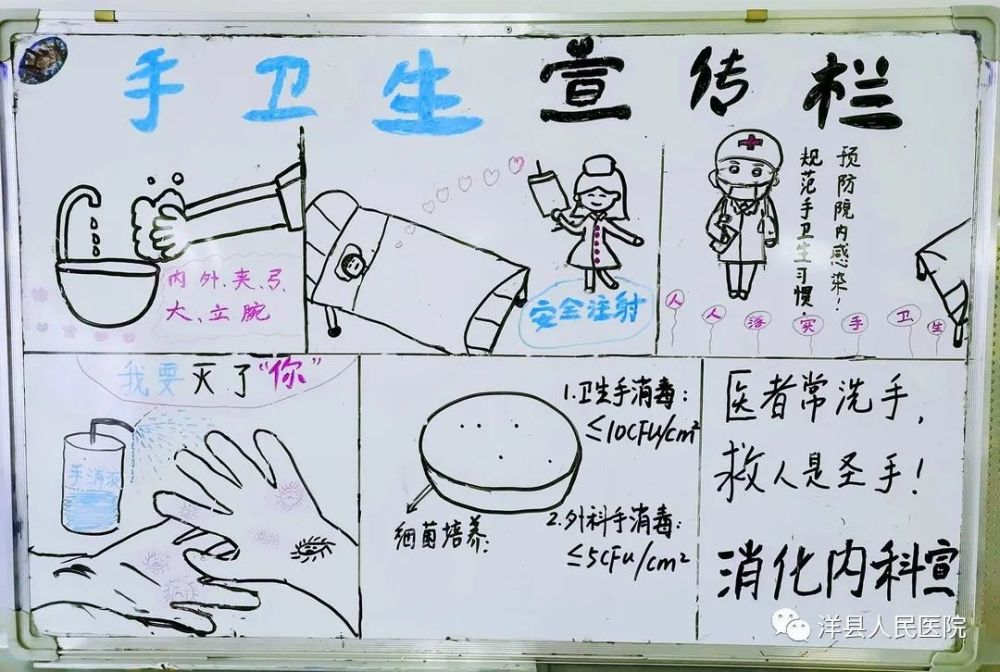 手卫生宣传栏
内、外、夹、弓、
大、立、腕
安全注射
预防院内感染!
规范手卫生习惯.
人人落实手卫生
我要灭了“你”
手消液
细菌培养.
1.卫生手消毒:
≤10CFU/cm²
2.外科手消毒:
≤5CFU/cm²
医者常洗手,
救人是圣手!
消化内科宣
洋县人民医院